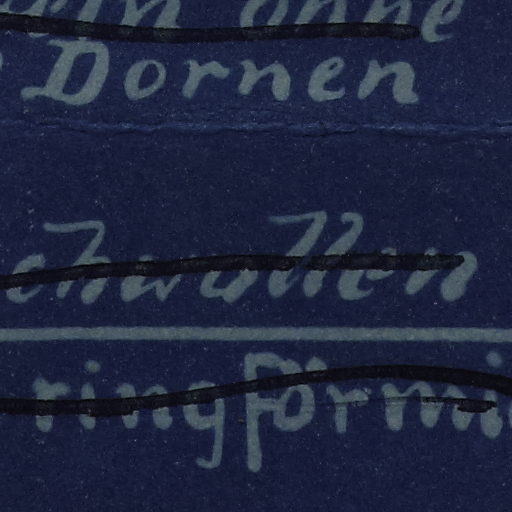 ohne
Dornen
chwollen
ringförmi